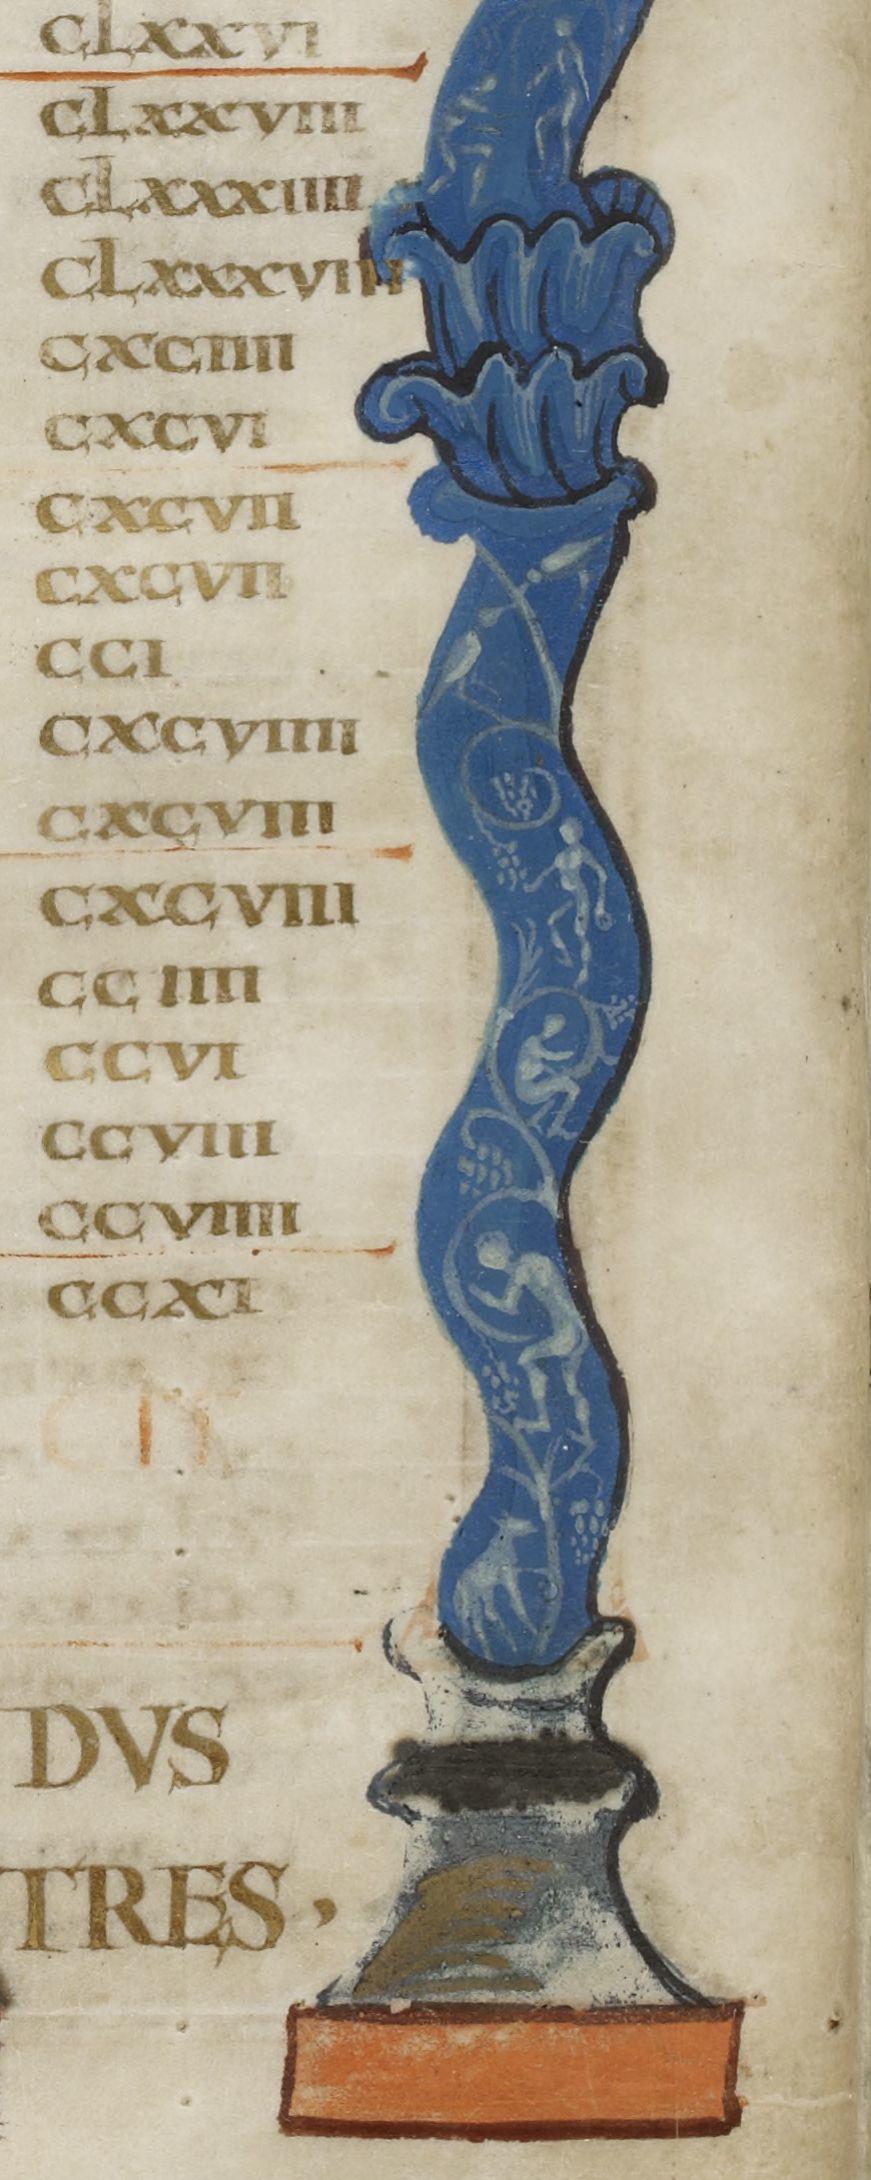 CLXXVI
CLXXVIII
CLXXXIIII
CLXXXVIII
CXCIIII
CXCVI
CXCVII
CXCVII
CCI
CXCVIIII
CXCVIII
CXCVIII
CCIIII
CCVI
CCVIII
CCVIIII
CCXI
DVS
TRES,